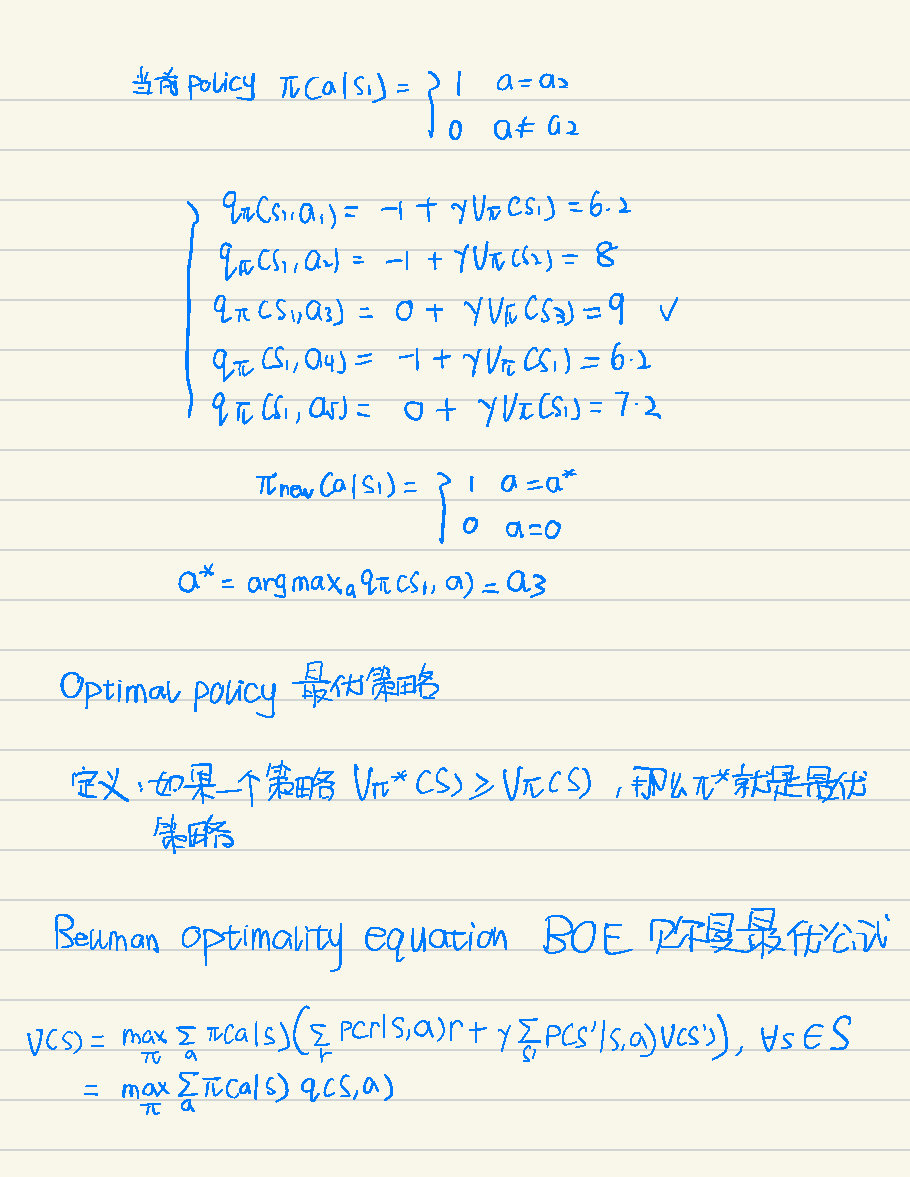 当前 policy π(a|s₁) = { 1 a=a₂
0 a≠a₂
qπ(s₁,a₁) = -1 + γVπ(s₁) = 6.2
qπ(s₁,a₂) = -1 + γVπ(s₂) = 8
qπ(s₁,a₃) = 0 + γVπ(s₃) = 9 ✓
qπ(s₁,a₄) = -1 + γVπ(s₁) = 6.2
qπ(s₁,a₅) = 0 + γVπ(s₁) = 7.2
πnew(a|s₁) = { 1 a=a*
0 a=0
a* = argmaxₐ qπ(s₁,a) = a₃
Optimal policy 最优策略
定义:如果一个策略 Vπ*(s) ≥ Vπ(s),那么π*就是最优
策略
Bellman optimality equation BOE 贝尔曼最优公式
V(s) = max_π Σ_a π(a|s)(Σ_r P(r|s,a)r + γ Σ_s' P(s'|s,a)V(s')), ∀s∈S
= max_π Σ_a π(a|s) q(s,a)